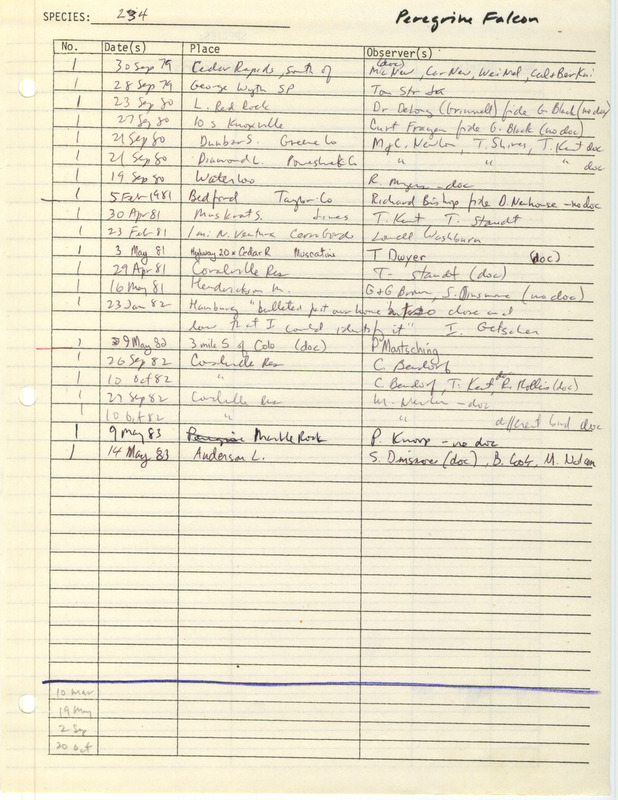 SPECIES: 234 Peregrine Falcon
No. Date(s) Place Observer(s)
1 30 Sep 79 Cedar Rapids, South of (doc) Mic New, Car New, Wei Mel, Cal + Ber Kni
1 28 Sep 79 George Wyth SP Tom Sta
1 23 Sep 80 L. Red Rock Dr DeLong (Grinnell) fide G. Black (no doc)
1 27 Sep 80 10 S Knoxville Curt Frazen fide G. Black (no doc)
1 21 Sep 80 Dunbar S. Greene Co M + C. Newlon, T. Shires, T. Kent doc
1 21 Sep 80 Diamond L. Poweshiek Co " " " doc
1 19 Sep 80 Waterloo R. Myers - doc
1 5 Feb 1981 Bedford Taylor Co Richard Bishop fide D. Newhouse - no doc
1 30 Apr 81 Muskrat S. Jones T. Kent T. Staudt
1 23 Feb 81 1 mi N. Ventura Cerro Gordo Lowell Washburn
1 3 May 81 Highway 20 x Cedar R Muscatine T Dwyer (doc)
1 29 Apr 81 Coralville Res T. Staudt (doc)
1 16 May 81 Hendrickson M. G + G Brown, S. Dinsmore (no doc)
1 23 Jan 82 Hamburg "bulleted past our home so close and
low that I could identify it" I. Getscher
1 29 May 82 3 mile S of Colo (doc) P Martsching
1 26 Sep 82 Coralville Res C. Bendorf
1 10 Oct 82 " C. Bendorf, T. Kent, R. Hollis (doc)
1 27 Sep 82 Coralville Res M. Newlon - doc
10 Oct 82 " " different bird doc
1 9 May 83 Marble Rock P. Knapp - no doc
1 14 May 83 Anderson L. S. Dinsmore (doc), B. Cook, M. Nolan
10 Mar
19 May
2 Sep
20 Oct